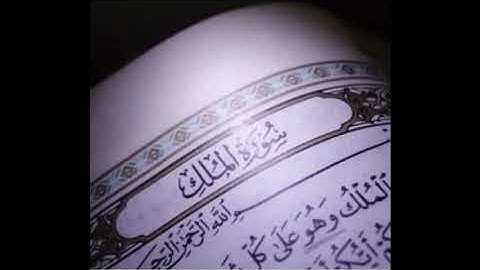 سُورَةُ المُلْكِ
ـمِ اللَّهِ الرَّحْمَٰنِ الرَّحِـ
الْمُلْكُ وَهُوَ عَلَىٰ كُلِّ